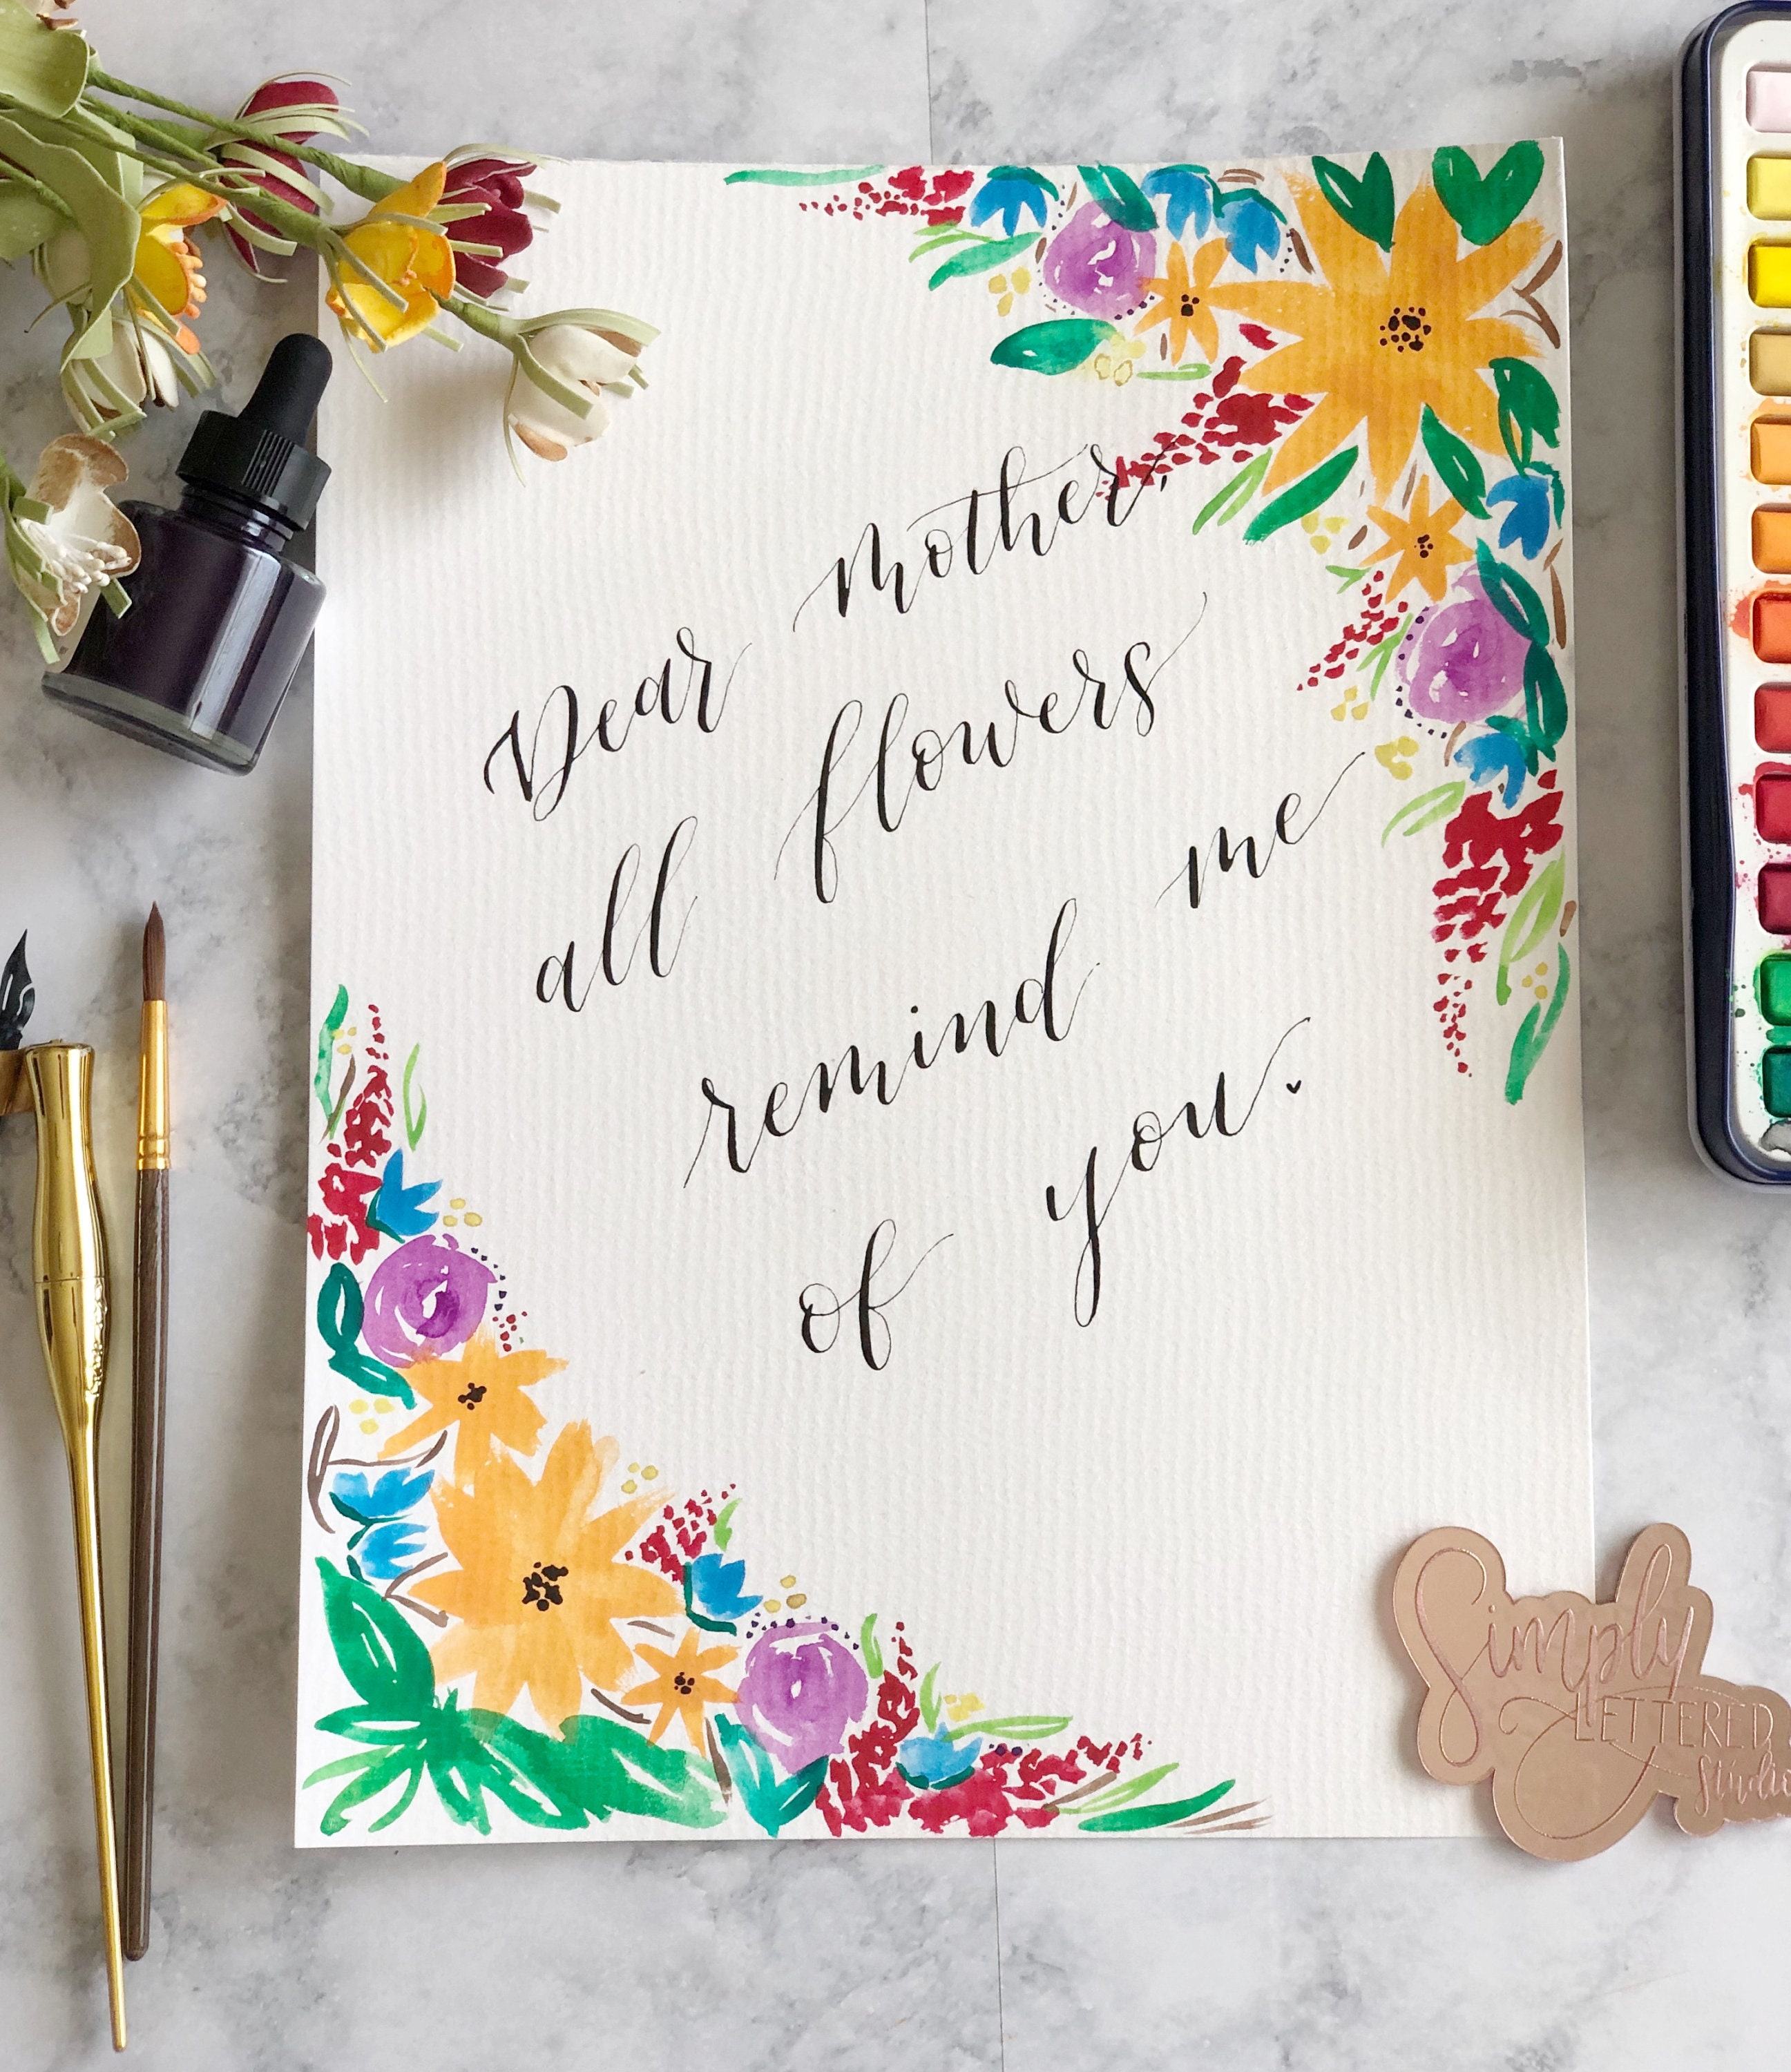 Dear mother,
all flowers
remind me
of you.
Simply
LETTERED
Studio